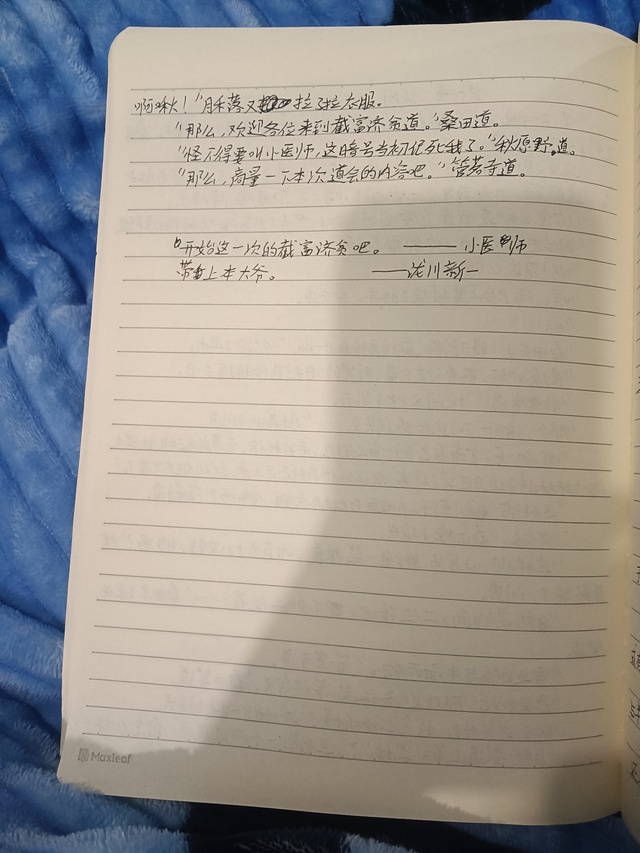 啊啾！”月禾落又拉了拉衣服。
“那么，欢迎各位来到截富济贫道。”桑田道。
“怪不得要叫小医师，这暗号当初记死我了。”秋原野道。
“那么，商量一下本次道会的内容吧。”管若寺道。
开始这一次的截富济贫吧。 ——小医师
带上本大爷。 ——泷川新一
Maxleaf